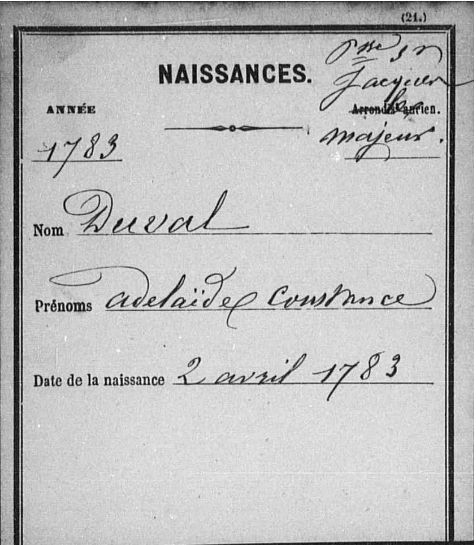 (21.)
NAISSANCES.
Psse St
Jacques
ANNÉE
Arrondist ancien.
1783
majeur.
Nom Duval
Prénoms adelaïde Constance
Date de la naissance 2 avril 1783